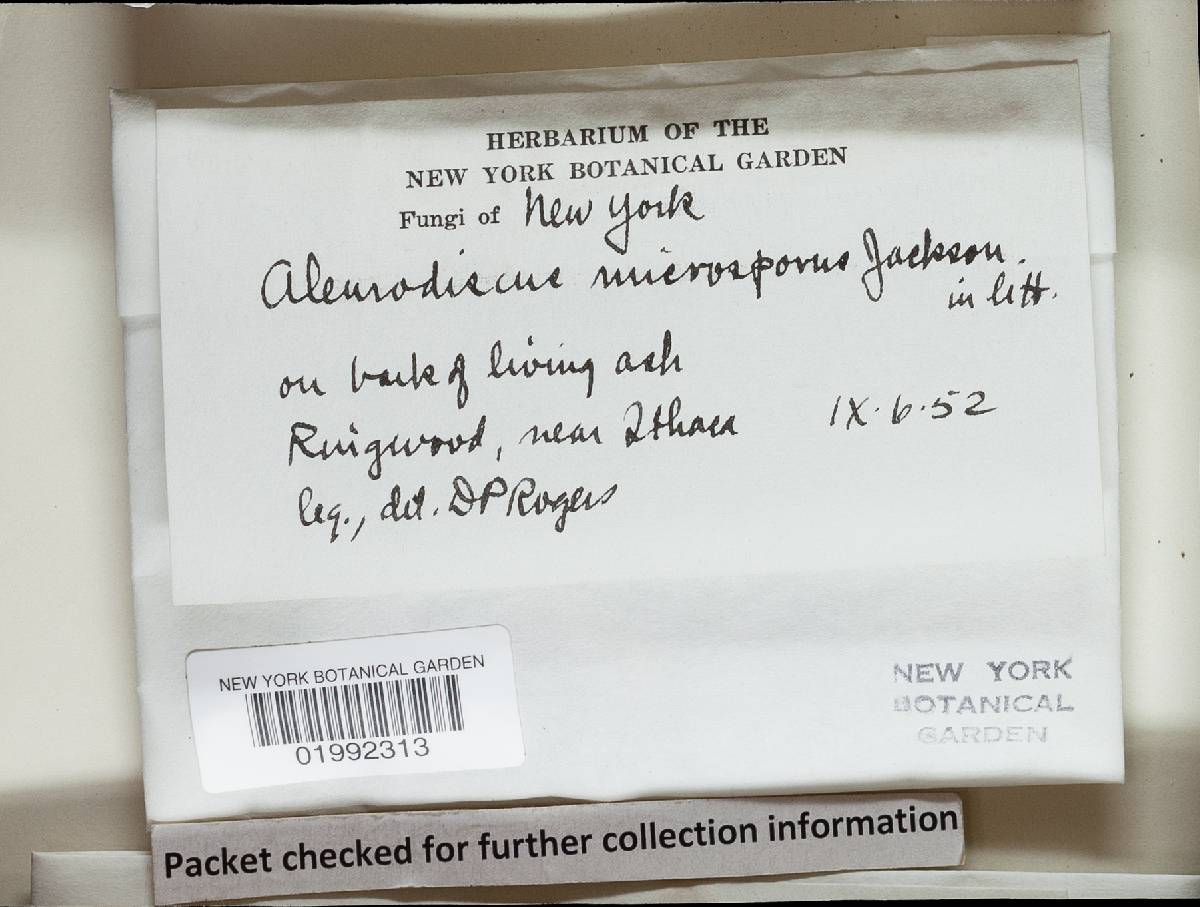 HERBARIUM OF THE
NEW YORK BOTANICAL GARDEN
Fungi of New York
Aleurodiscus microsporus Jackson.
in litt.
on bark of living ash
Ringwood, near Ithaca IX.6.52
leg., det. DP Rogers
NEW YORK BOTANICAL GARDEN
01992313
NEW YORK
BOTANICAL
GARDEN
Packet checked for further collection information